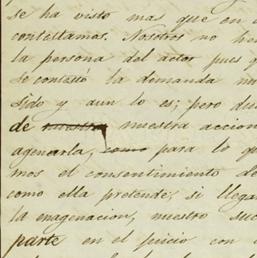 se ha visto mas que en
contestamos. Nosotros no he
la persona del actor pues q
se contestó la demanda n
sido y aun lo es; pero du
de nuestra nuestra accion
agenarla, como para lo q
mos el consentimiento de
como ella pretende, si llega
la enagenacion, nuestro suc
parte en el juicio con